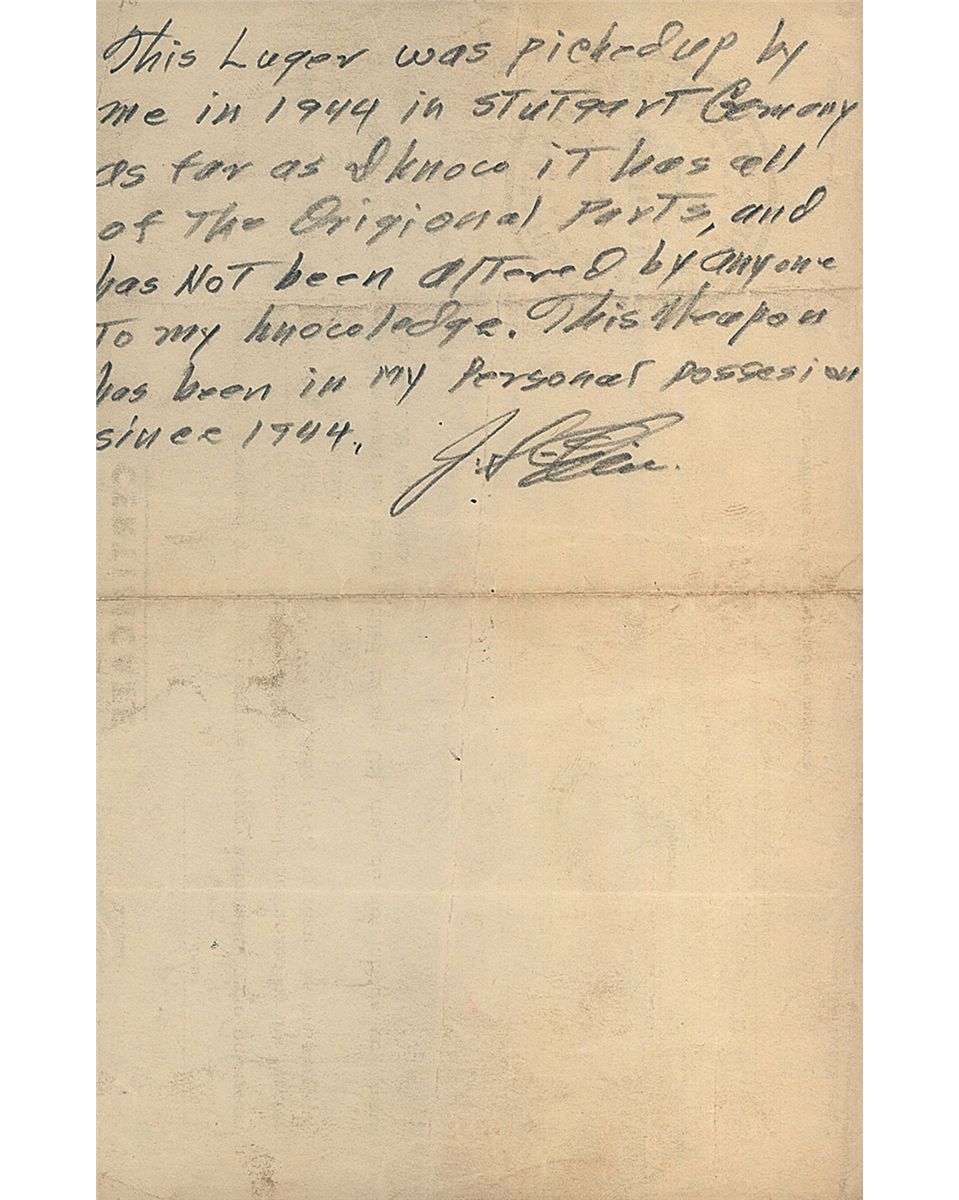 This Luger was picked up by
me in 1944 in Stutgart Gemany
as far as I know it has all
of The Origional Parts, and
has NOT been altered by anyone
To my knowledge. This Weapon
has been in My Personal possesion
since 1944.